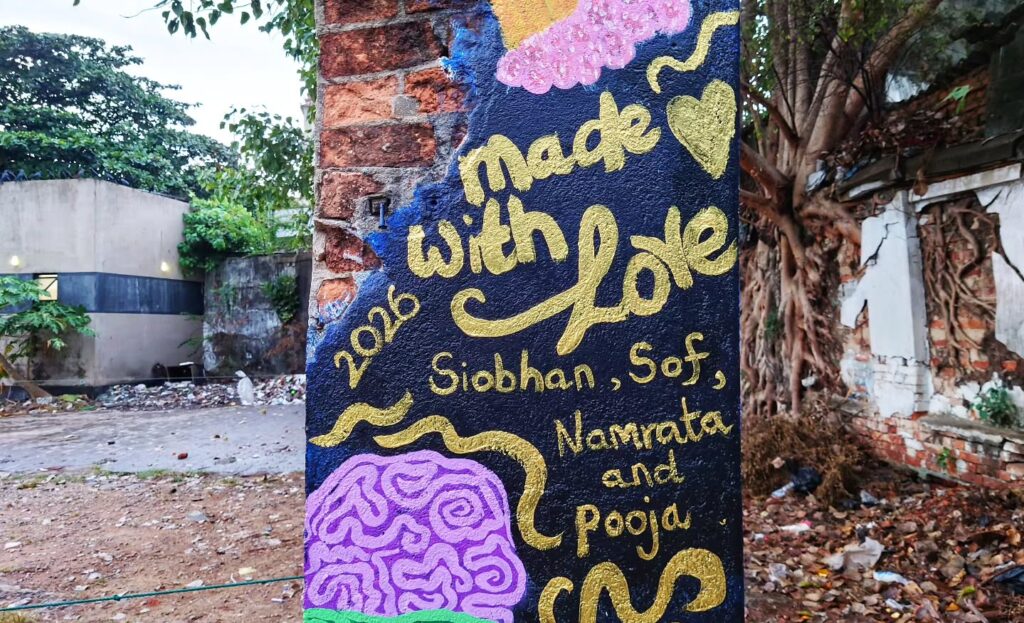 made
with Love
2026
Siobhan, Sof,
Namrata
and
Pooja.